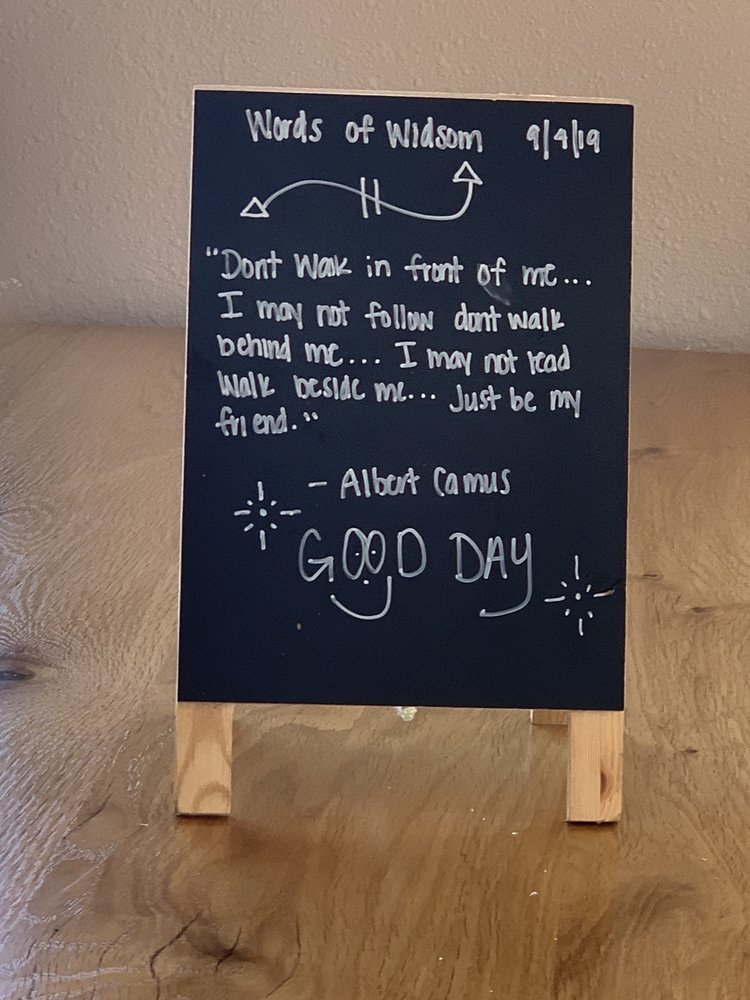 Words of Widsom 9/4/19
"Dont Walk in front of me...
I may not follow dont walk
behind me... I may not lead
Walk beside me... Just be my
friend."
- Albert Camus
GOOD DAY